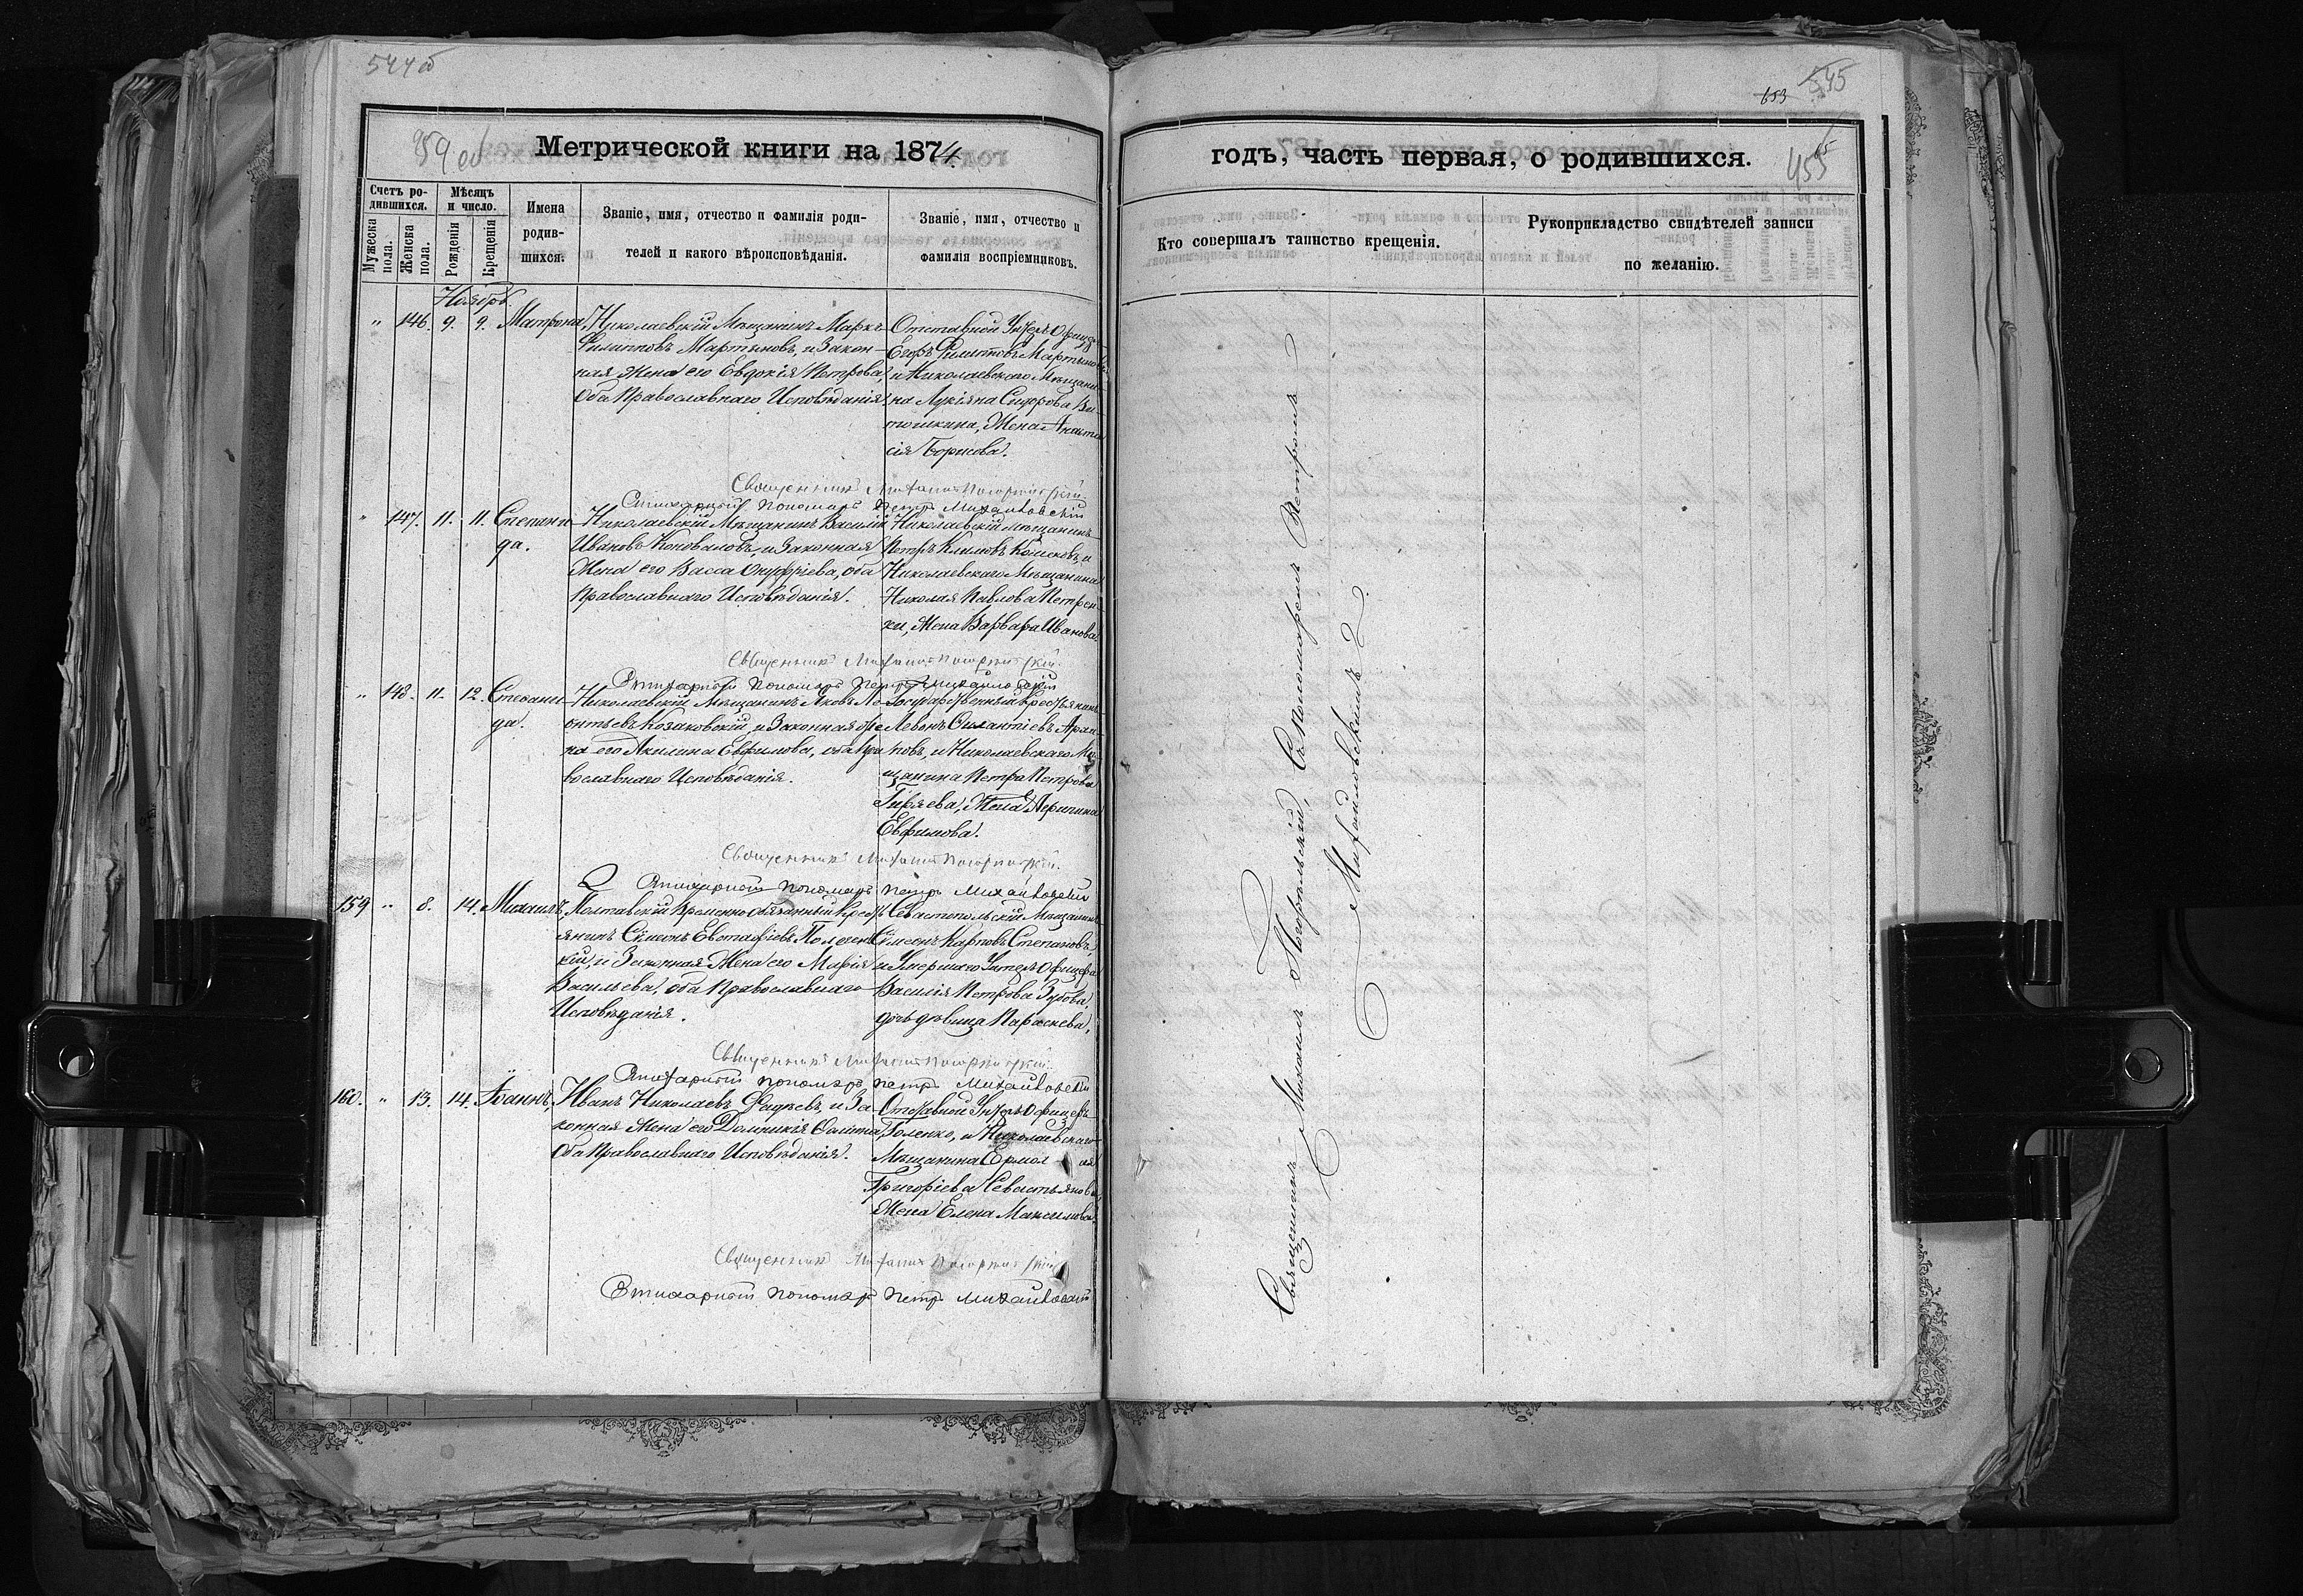 544об
Метрической книги на 1874
Счетъ ро-
дившихся.
Мѣсяцъ
и число.
Имена
родив-
шихся.
Званіе, имя, отчество и фамилія роди-
телей и какого вѣроисповѣданія.
Званіе, имя, отчество и
фамилія воспріемниковъ.
Мужеска
пола.
Женска
пола.
Рожденія
Крещенія
Ноябрь.
" 146. 9. 9. Матрона,
Николаевскій Мѣщанинъ Маркъ
Филипповъ Мартыновъ, и Закон-
ная Жена его Евдокія Петрова,
Оба Православнаго Исповѣданія.
Отставной Унтеръ Офицеръ
Егоръ Филипповъ Мартыновъ
и Николаевскаго Мѣщани-
на Лукіяна Сидорова
Жена Анаста-
сія Борисова.
Священникъ Михаилъ Погорѣльскій
Стихарный Пономарь Петръ Михайловскій
" 147. 11. 11. Степани-
да.
Николаевскій Мѣщанинъ Василій
Ивановъ Коноваловъ, и Законная
Жена его Васса Онуфріева, оба
Православнаго Исповѣданія.
Николаевскій мѣщанинъ
Петръ Климовъ и
Николаевскаго Мѣщанина
Николая Павлова Петрен-
ки, Жена Варвара Иванова.
Священникъ Михаилъ Погорѣльскій
Стихарный Пономарь Петръ Михайловскій
" 148. 11. 12. Степани-
да.
Николаевскій Мѣщанинъ Яковъ Ле-
онтьевъ Козаковскій, и Законная Же-
на его Акилина Евфимова, оба Пра-
вославнаго Исповѣданія.
Государственный Крестьянинъ
Левонъ
повъ, и Николаевскаго Мѣ-
щанина Петра Петрова
Гиряева, Жена
Евфимова.
Священникъ Михаилъ Погорѣльскій
Стихарный Пономарь Петръ Михайловскій
159 " 8. 14. Михаилъ,
Полтавскій Временно обязанный Крест-
янинъ Сѵмеонъ Евстафіевъ
кій, и Законная Жена его Марія
Васильева, оба Православнаго
Исповѣданія.
Севастопольскій Мѣщанинъ
Сѵмеонъ Карповъ Степановъ,
и Умершаго Унтеръ Офицера
Василія Петрова Зубова,
дочь дѣвица Параскева,
Священникъ Михаилъ Погорѣльскій
Стихарный Пономарь Петръ Михайловскій
160. " 13. 14. Іоаннъ,
Иванъ Николаевъ Фадѣевъ, и За-
конная Жена его Домникія
Оба Православнаго Исповѣданія.
Отставной Унтеръ Офицеръ
Голенко, и Николаевскаго
Мѣщанина Ермолая
Григоріева Севастьянова,
Жена Елена Максимова.
Священникъ Михаилъ Погорѣльскій
Стихарный Пономарь Петръ Михайловскій
653 545
годъ, часть первая, о родившихся.
455
Кто совершалъ таинство крещенія.
Рукоприкладство свидѣтелей записи
по желанію.
Священникъ Михаилъ Погорѣльскій, Съ Пономаремъ Петромъ
Михайловскимъ